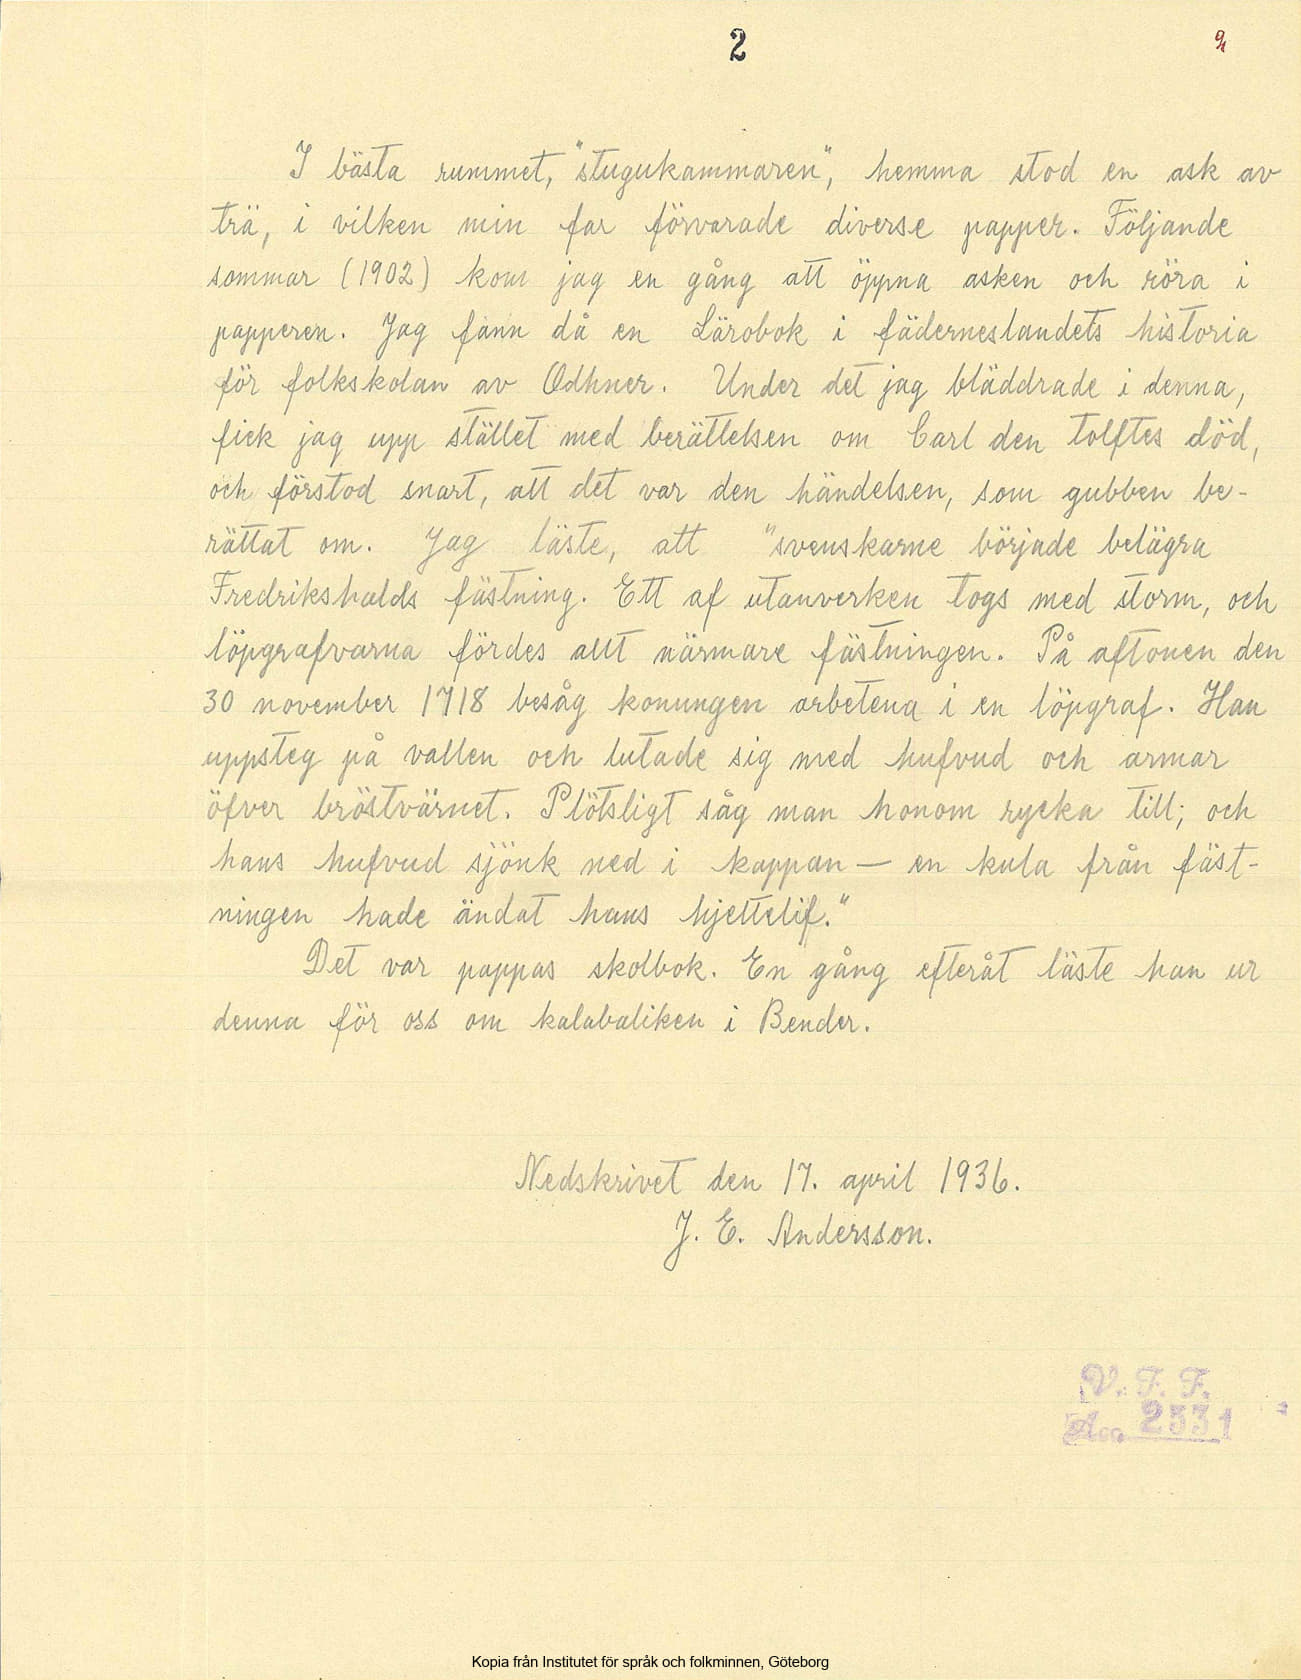 2
I bästa rummet, "stugukammaren", hemma stod en ask av
trä, i vilken min far förvarade diverse papper. Följande
sommar (1902) kom jag en gång att öppna asken och röra i
papperen. Jag fann då en Lärobok i fäderneslandets historia
för folkskolan av Odhner. Under det jag bläddrade i denna,
fick jag upp stället med berättelsen om Carl den tolftes död,
och förstod snart, att det var den händelsen, som gubben be-
rättat om. Jag läste, att "svenskarne började belägra
Fredrikshalds fästning. Ett af utanverken togs med storm, och
löpgrafvarna fördes allt närmare fästningen. På aftonen den
30 november 1718 besåg konungen arbetena i en löpgraf. Han
uppsteg på vallen och lutade sig med hufvud och armar
öfver bröstvärnet. Plötsligt såg man honom rycka till; och
hans hufvud sjönk ned i kappan — en kula från fäst-
ningen hade ändat hans hjeltelif."
Det var pappas skolbok. En gång efteråt läste han ur
denna för oss om kalabaliken i Bender.
Nedskrivet den 17. april 1936.
J. E. Andersson.
V. F. F.
Acc. 2531
Kopia från Institutet för språk och folkminnen, Göteborg